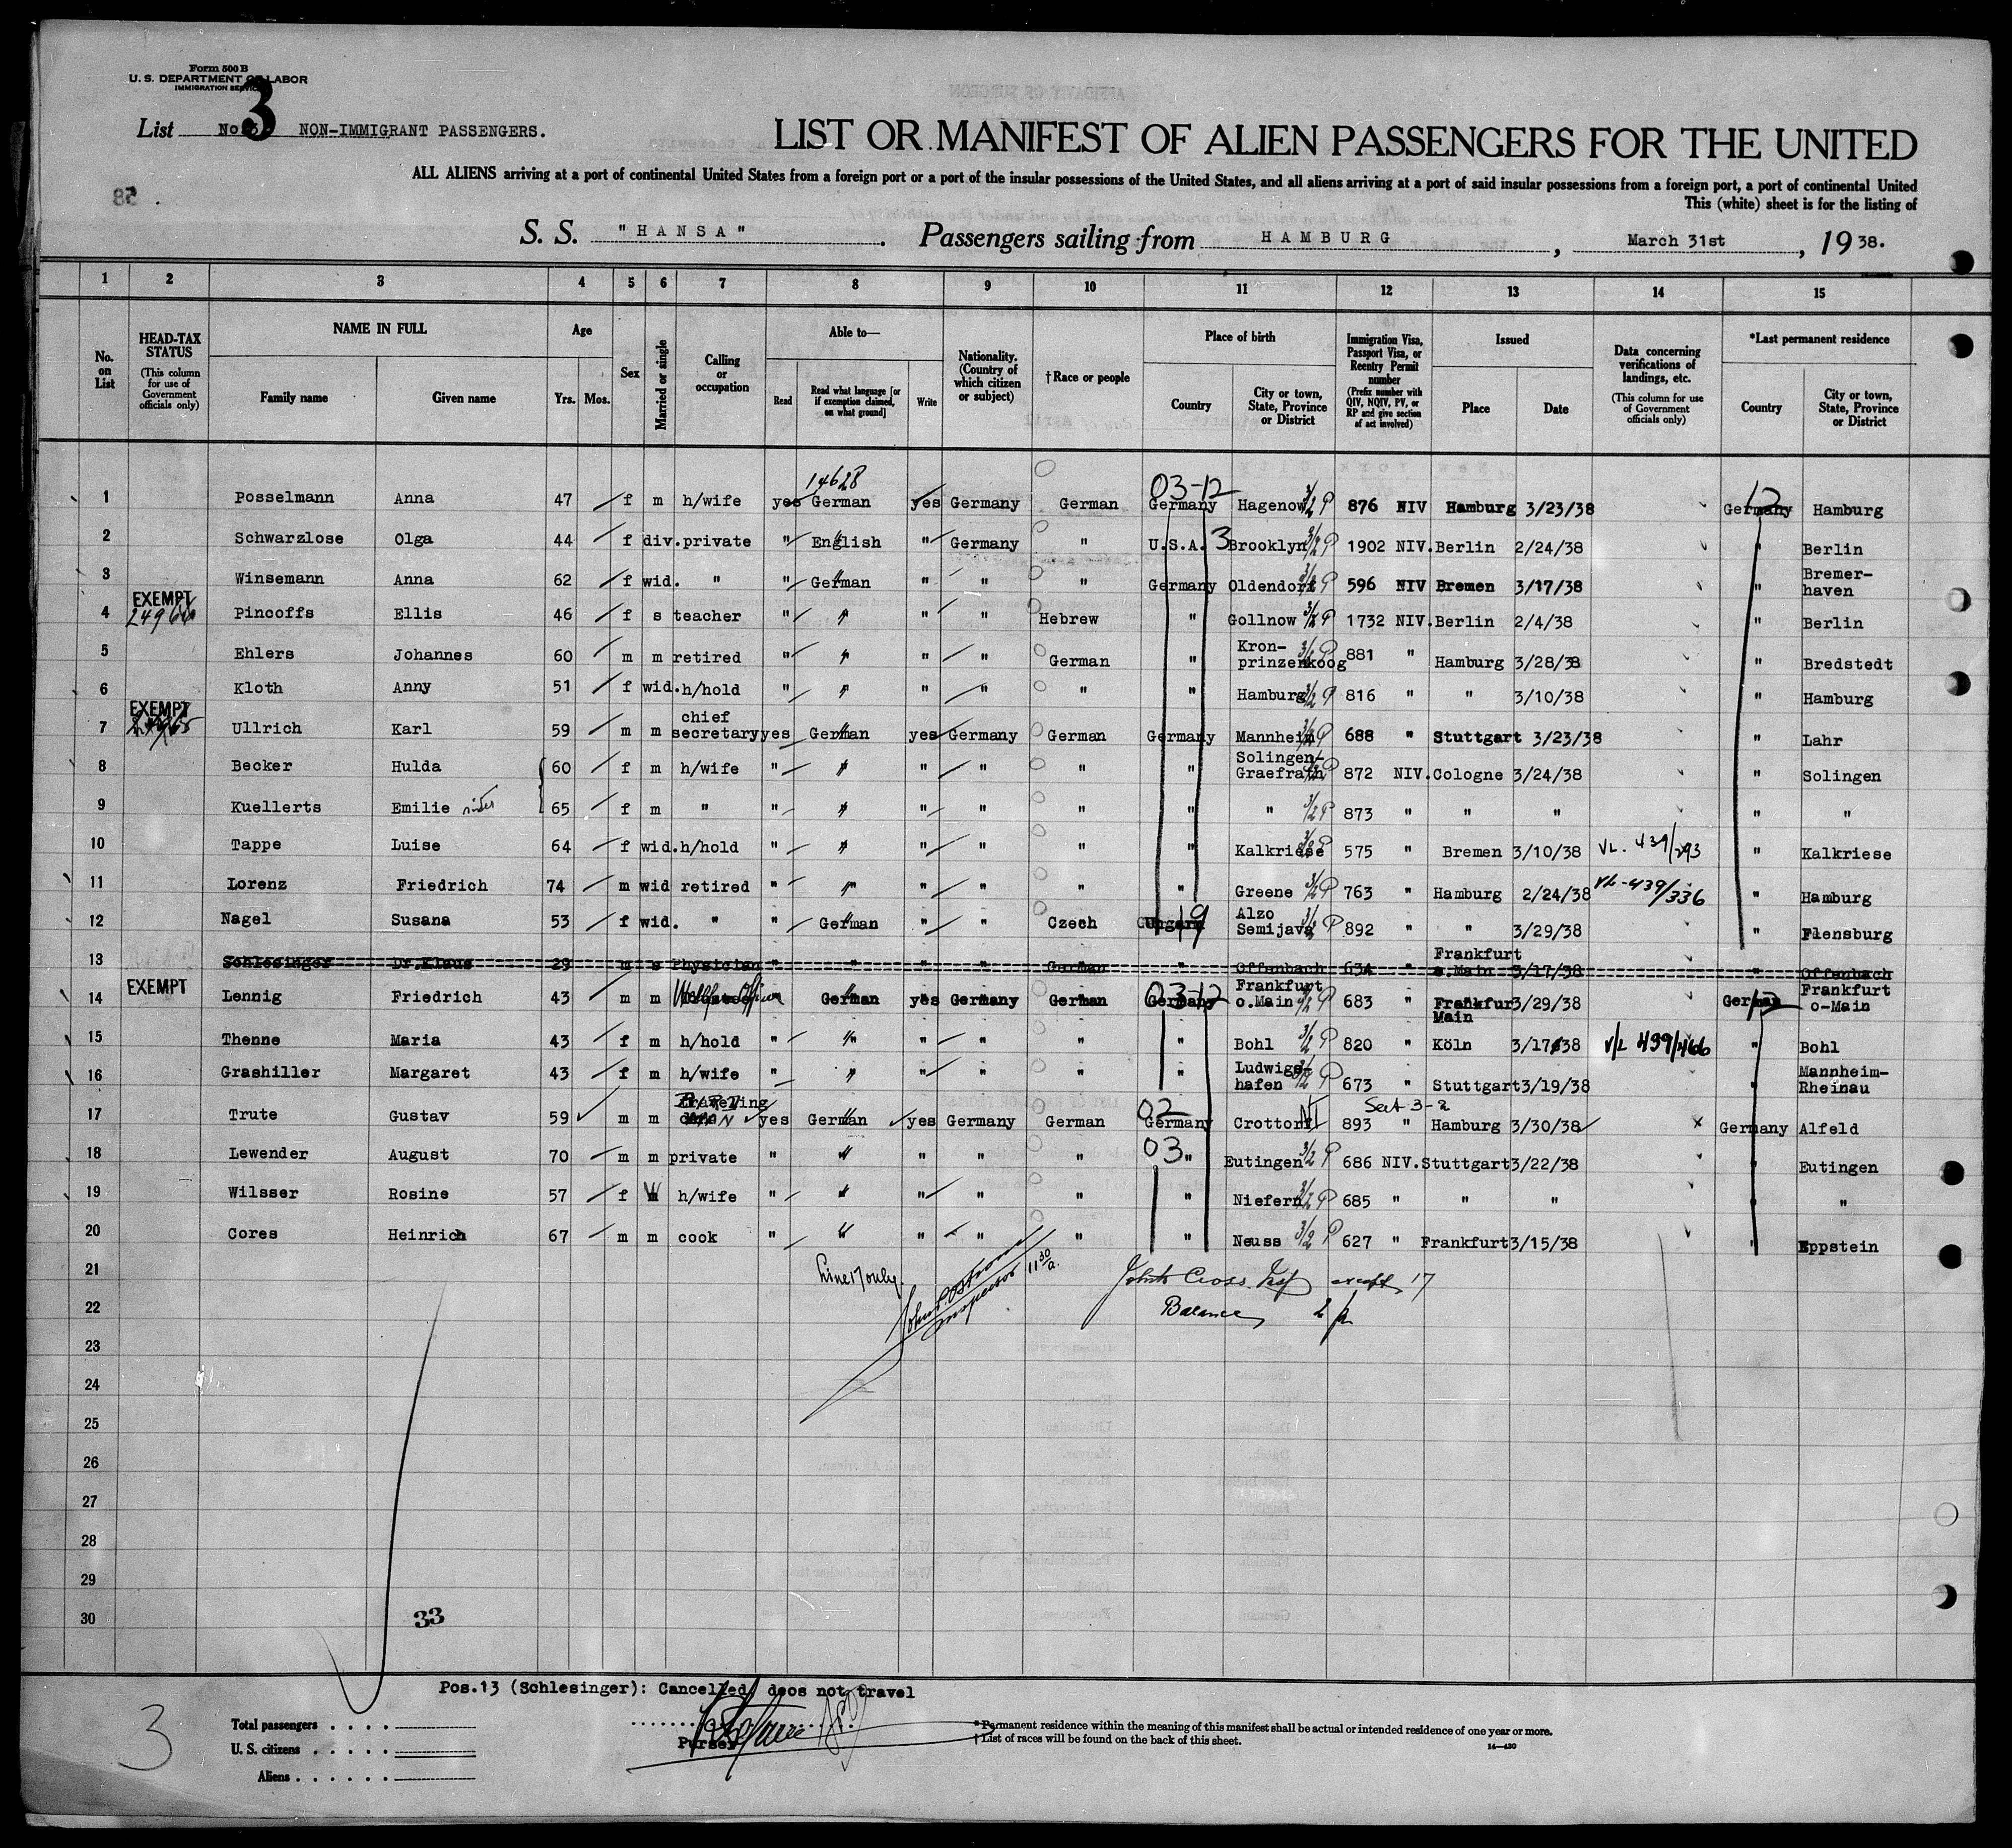 Form 500 B
U. S. DEPARTMENT OF LABOR
IMMIGRATION SERVICE
3
List No. NON-IMMIGRANT PASSENGERS.
LIST OR MANIFEST OF ALIEN PASSENGERS FOR THE UNITED
ALL ALIENS arriving at a port of continental United States from a foreign port or a port of the insular possessions of the United States, and all aliens arriving at a port of said insular possessions from a foreign port, a port of continental United
This (white) sheet is for the listing of
S. S. "HANSA" . Passengers sailing from HAMBURG , March 31st , 19 38.
1 2 3 4 5 6 7 8 9 10 11 12 13 14 15
No. on List
HEAD-TAX STATUS (This column for use of Government officials only)
NAME IN FULL
Family name Given name
Age
Yrs. Mos.
Sex
Married or single
Calling or occupation
Able to—
Read Read what language [or if exemption claimed, on what ground] Write
Nationality. (Country of which citizen or subject)
†Race or people
Place of birth
Country City or town, State, Province or District
Immigration Visa, Passport Visa, or Reentry Permit number (Prefix number with QIV, NQIV, PV, or RP and give section of act involved)
Issued
Place Date
Data concerning verifications of landings, etc. (This column for use of Government officials only)
*Last permanent residence
Country City or town, State, Province or District
14628 03-12 12
1 Posselmann Anna 47 f m h/wife yes German yes Germany German Germany Hagenow 3/2 P 876 NIV Hamburg 3/23/38 Germany Hamburg
2 Schwarzlose Olga 44 f div. private " English " Germany " U.S.A. 3 Brooklyn 3/2 P 1902 NIV. Berlin 2/24/38 " Berlin
3 Winsemann Anna 62 f wid. " " German " " " Germany Oldendorf 3/2 P 596 NIV Bremen 3/17/38 " Bremer-haven
EXEMPT
4 Pincoffs Ellis 46 f s teacher " " " " Hebrew " Gollnow 3/2 P 1732 NIV. Berlin 2/4/38 " Berlin
5 Ehlers Johannes 60 m m retired " " " " German " Kron-prinzenkoog 3/2 P 881 " Hamburg 3/28/38 " Bredstedt
6 Kloth Anny 51 f wid. h/hold " " " " " " Hamburg 3/2 P 816 " " 3/10/38 " Hamburg
EXEMPT
7 Ullrich Karl 59 m m chief secretary yes German yes Germany German Germany Mannheim 3/2 P 688 " Stuttgart 3/23/38 " Lahr
8 Becker Hulda 60 f m h/wife " " " " " " Solingen-Graefrath 3/2 P 872 NIV. Cologne 3/24/38 " Solingen
9 Kuellerts Emilie sister 65 f m " " " " " " " " 3/2 P 873 " " " " "
10 Tappe Luise 64 f wid. h/hold " " " " " " Kalkriese 3/2 P 575 " Bremen 3/10/38 VL. 439/293 " Kalkriese
11 Lorenz Friedrich 74 m wid retired " " " " " " Greene 3/2 P 763 " Hamburg 2/24/38 VL-439/336 " Hamburg
12 Nagel Susana 53 f wid. " " German " " Czech 19 Alzo Semijava 3/2 P 892 " " 3/29/38 " Flensburg
13 Schlesinger Dr. Klaus 29 m s Physician " " " " German " Offenbach 634 " Frankfurt a.Main 3/17/38 " Offenbach
EXEMPT
14 Lennig Friedrich 43 m m German yes Germany German Germany 03-12 Frankfurt o.Main 3/2 P 683 " Frankfur Main 3/29/38 Germany 12 Frankfurt o-Main
15 Thenne Maria 43 f m h/hold " " " " " " Bohl 3/2 P 820 " Köln 3/17/38 V/L 439/466 " Bohl
16 Grashiller Margaret 43 f m h/wife " " " " " " Ludwigs-hafen 3/2 P 673 " Stuttgart 3/19/38 " Mannheim-Rheinau
17 Trute Gustav 59 m m travelling yes German yes Germany German 02 Germany Crottorf 893 " Sect 3-2 Hamburg 3/30/38 x Germany Alfeld
18 Lewender August 70 m m private " " " " " 03 " Eutingen 3/2 P 686 NIV. Stuttgart 3/22/38 " Eutingen
19 Wilsser Rosine 57 f W h/wife " " " " " " Niefern 3/2 P 685 " " " " "
20 Cores Heinrich 67 m m cook " " " " " " Neuss 3/2 P 627 " Frankfurt 3/15/38 " Eppstein
21 Line 17 only. 11 30/a. except 17
22 Inspector Balance
23
24
25
26
27
28
29
30
33
Pos.13 (Schlesinger): Cancelled, deos not travel
3
Total passengers
U. S. citizens
Aliens
Purser
*Permanent residence within the meaning of this manifest shall be actual or intended residence of one year or more.
†List of races will be found on the back of this sheet.
14—430